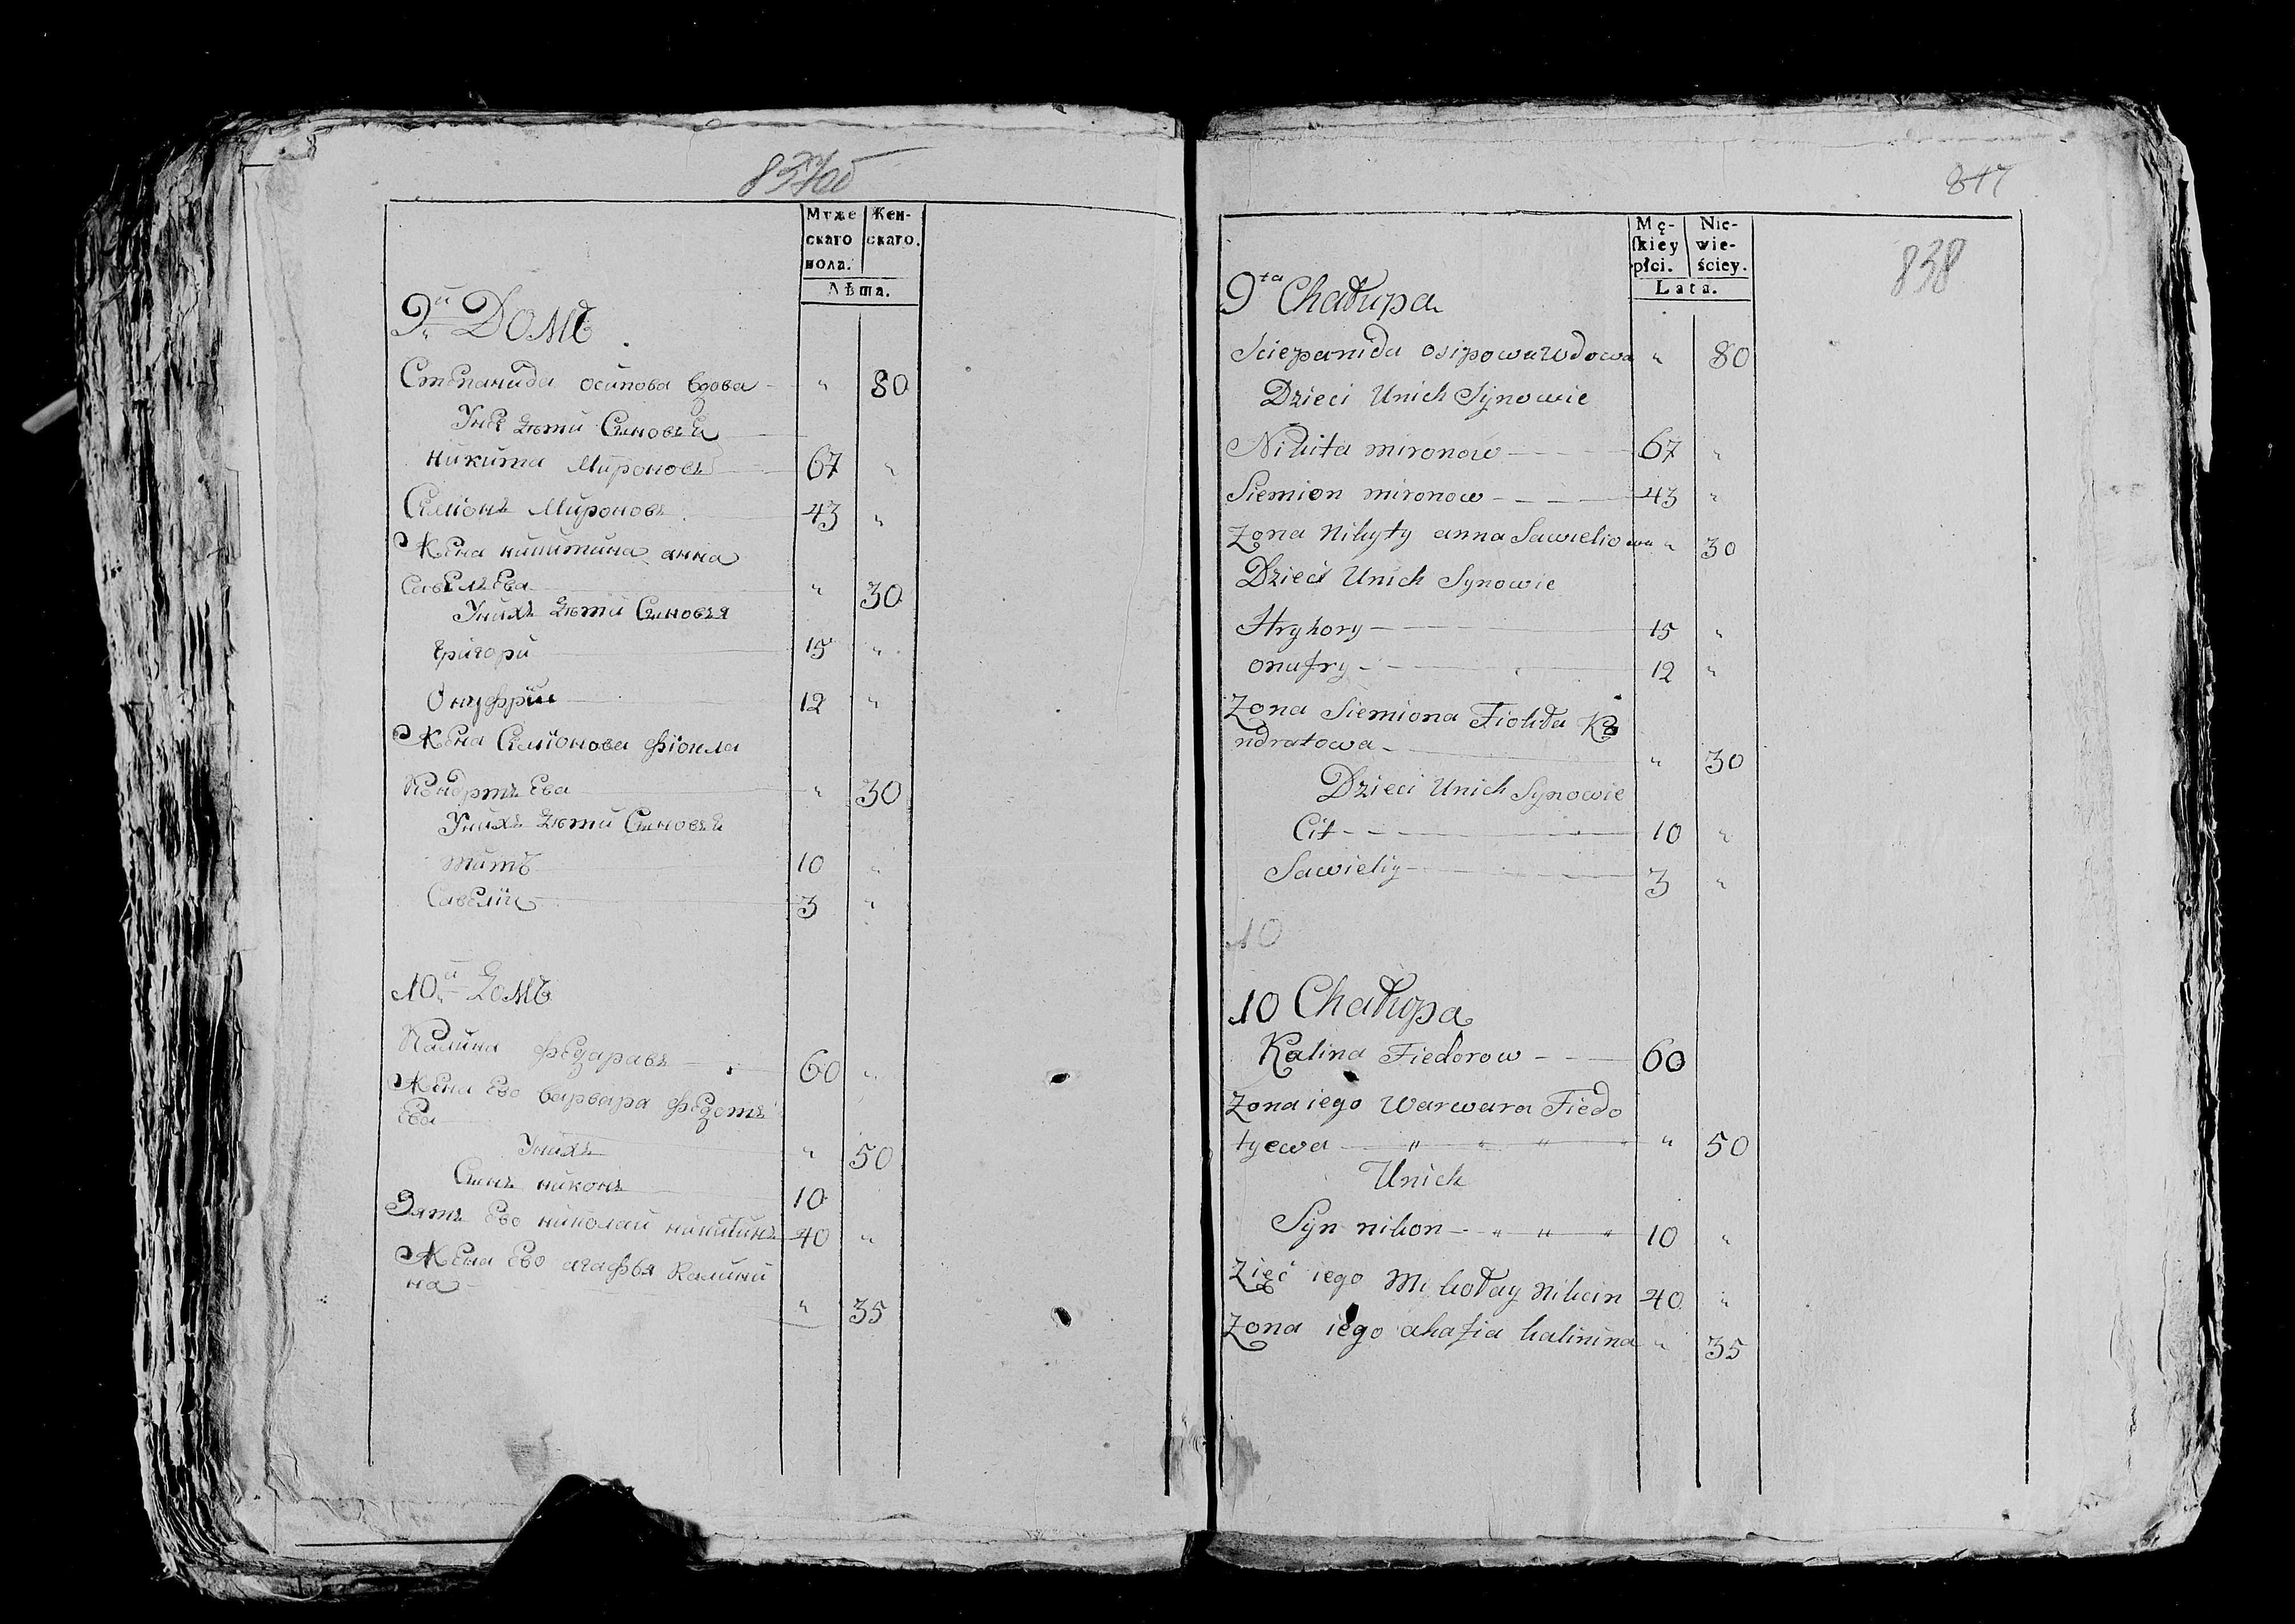 837об
Муже
скаго
пола.
Жен-
скаго.
Лѣта.
9й Домъ
Степанида осипова вдова " 80
Унея дѣти Сыновья
никита Мироновъ 67 "
Симіонъ Мироновъ 43 "
Жена никитина анна
Савельева " 30
Унихъ дѣти Сыновья
григори 15 "
Онуфрїи 12 "
Жена Симїонова фїокла
Кондртьева " 30
Унихъ дѣти Сыновья
титъ 10 "
Савелїи 3 "
10й домъ
Калина федаравъ 60 "
Жена ево варвара федоть
ева
Унихъ " 50
Сынъ никонъ 10
Зять ево николай никитинъ 40 "
Жена ево агафья калини
на " 35
817
838
Mę-
ſkiey
płci.
Nie-
wie-
ściey.
Lata.
9ta Chałupa
Sciepanida osipowa wdowa " 80
Dzieci Unich Synowie
Nikita mironow 67 "
Siemion mironow 43 "
Zona Nikyty anna Sawieliowa " 30
Dzieci Unich Synowie
Hryhory 15 "
onufry 12 "
Zona Siemiona Fiokła Ko
ndratowa " 30
Dzieci Unich Synowie
Cit 10 "
Sawieliy 3 "
10
10 Chałupa
Kalina Fiedorow 60
Zona iego Warwara Fiedo
tyewa " " " " " 50
Unich
Syn nikon " " " 10 "
Zięć iego Mikołay Nikicin 40 "
Zona iego ahafia kalinina " 35